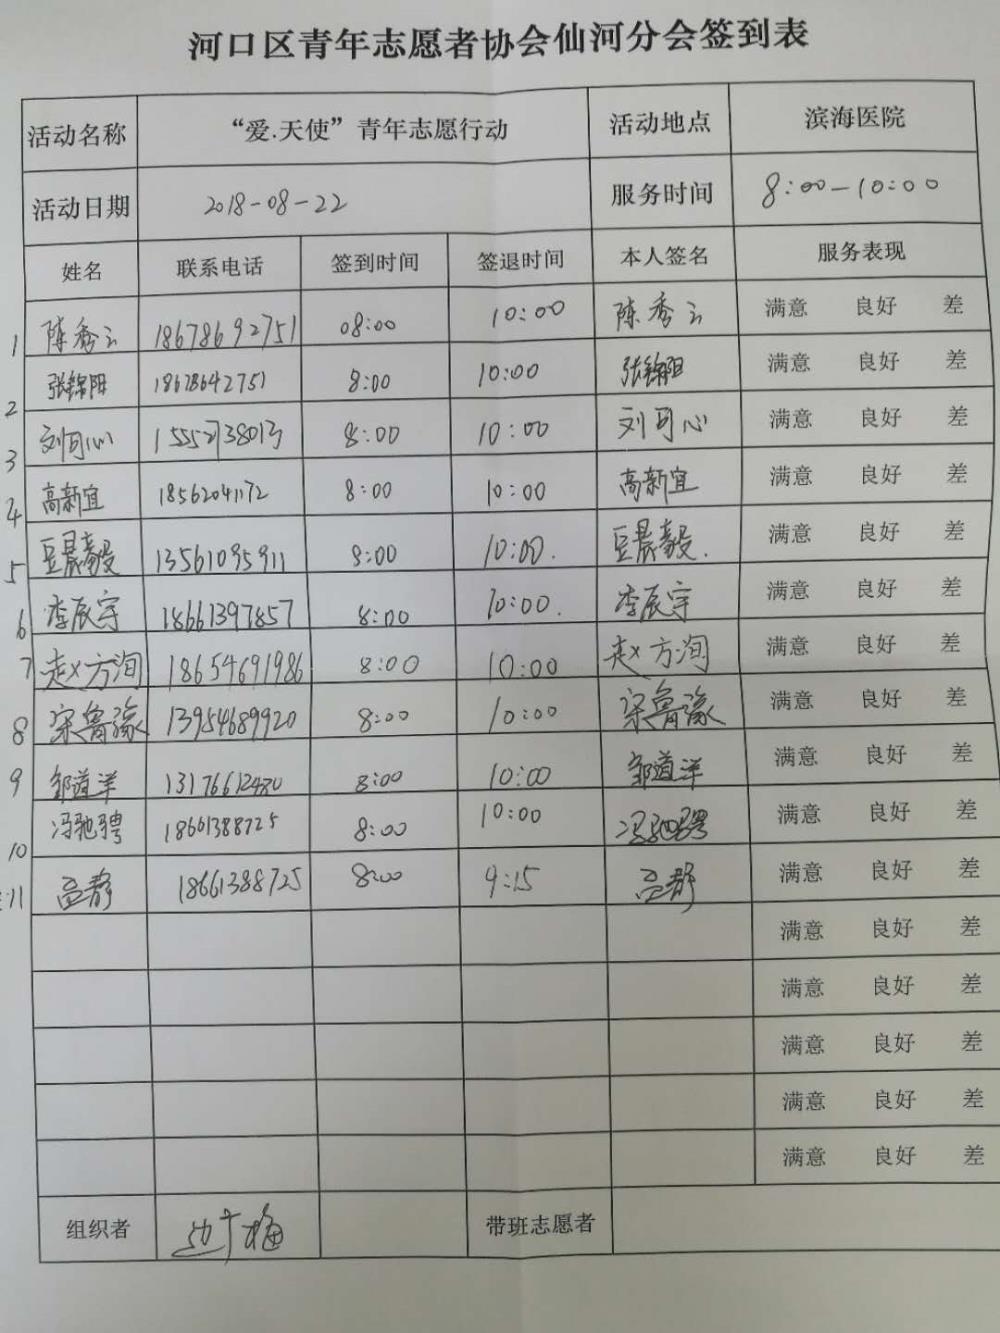 河口区青年志愿者协会仙河分会签到表
活动名称 “爱.天使”青年志愿行动 活动地点 滨海医院
活动日期 2018-08-22 服务时间 8:00-10:00
姓名 联系电话 签到时间 签退时间 本人签名 服务表现
1 陈秀云 18678692751 08:00 10:00 陈秀云 满意 良好 差
2 张锦阳 18678642751 8:00 10:00 张锦阳 满意 良好 差
3 刘可心 15552738013 8:00 10:00 刘可心 满意 良好 差
4 高新宜 18562041172 8:00 10:00 高新宜 满意 良好 差
5 豆晨毅 13561095911 8:00 10:00. 豆晨毅. 满意 良好 差
6 李辰宇 18661397857 8:00 10:00. 李辰宇 满意 良好 差
7 赵方洵 18654691986 8:00 10:00 赵方洵 满意 良好 差
8 宋鲁豫 13954689920 8:00 10:00 宋鲁豫 满意 良好 差
9 邹道洋 13176612480 8:00 10:00 邹道洋 满意 良好 差
10 冯驰骋 18661388725 8:00 10:00 冯驰骋 满意 良好 差
11 静 18661388725 8:00 9:15 静 满意 良好 差
满意 良好 差
满意 良好 差
满意 良好 差
满意 良好 差
满意 良好 差
组织者 梅 带班志愿者